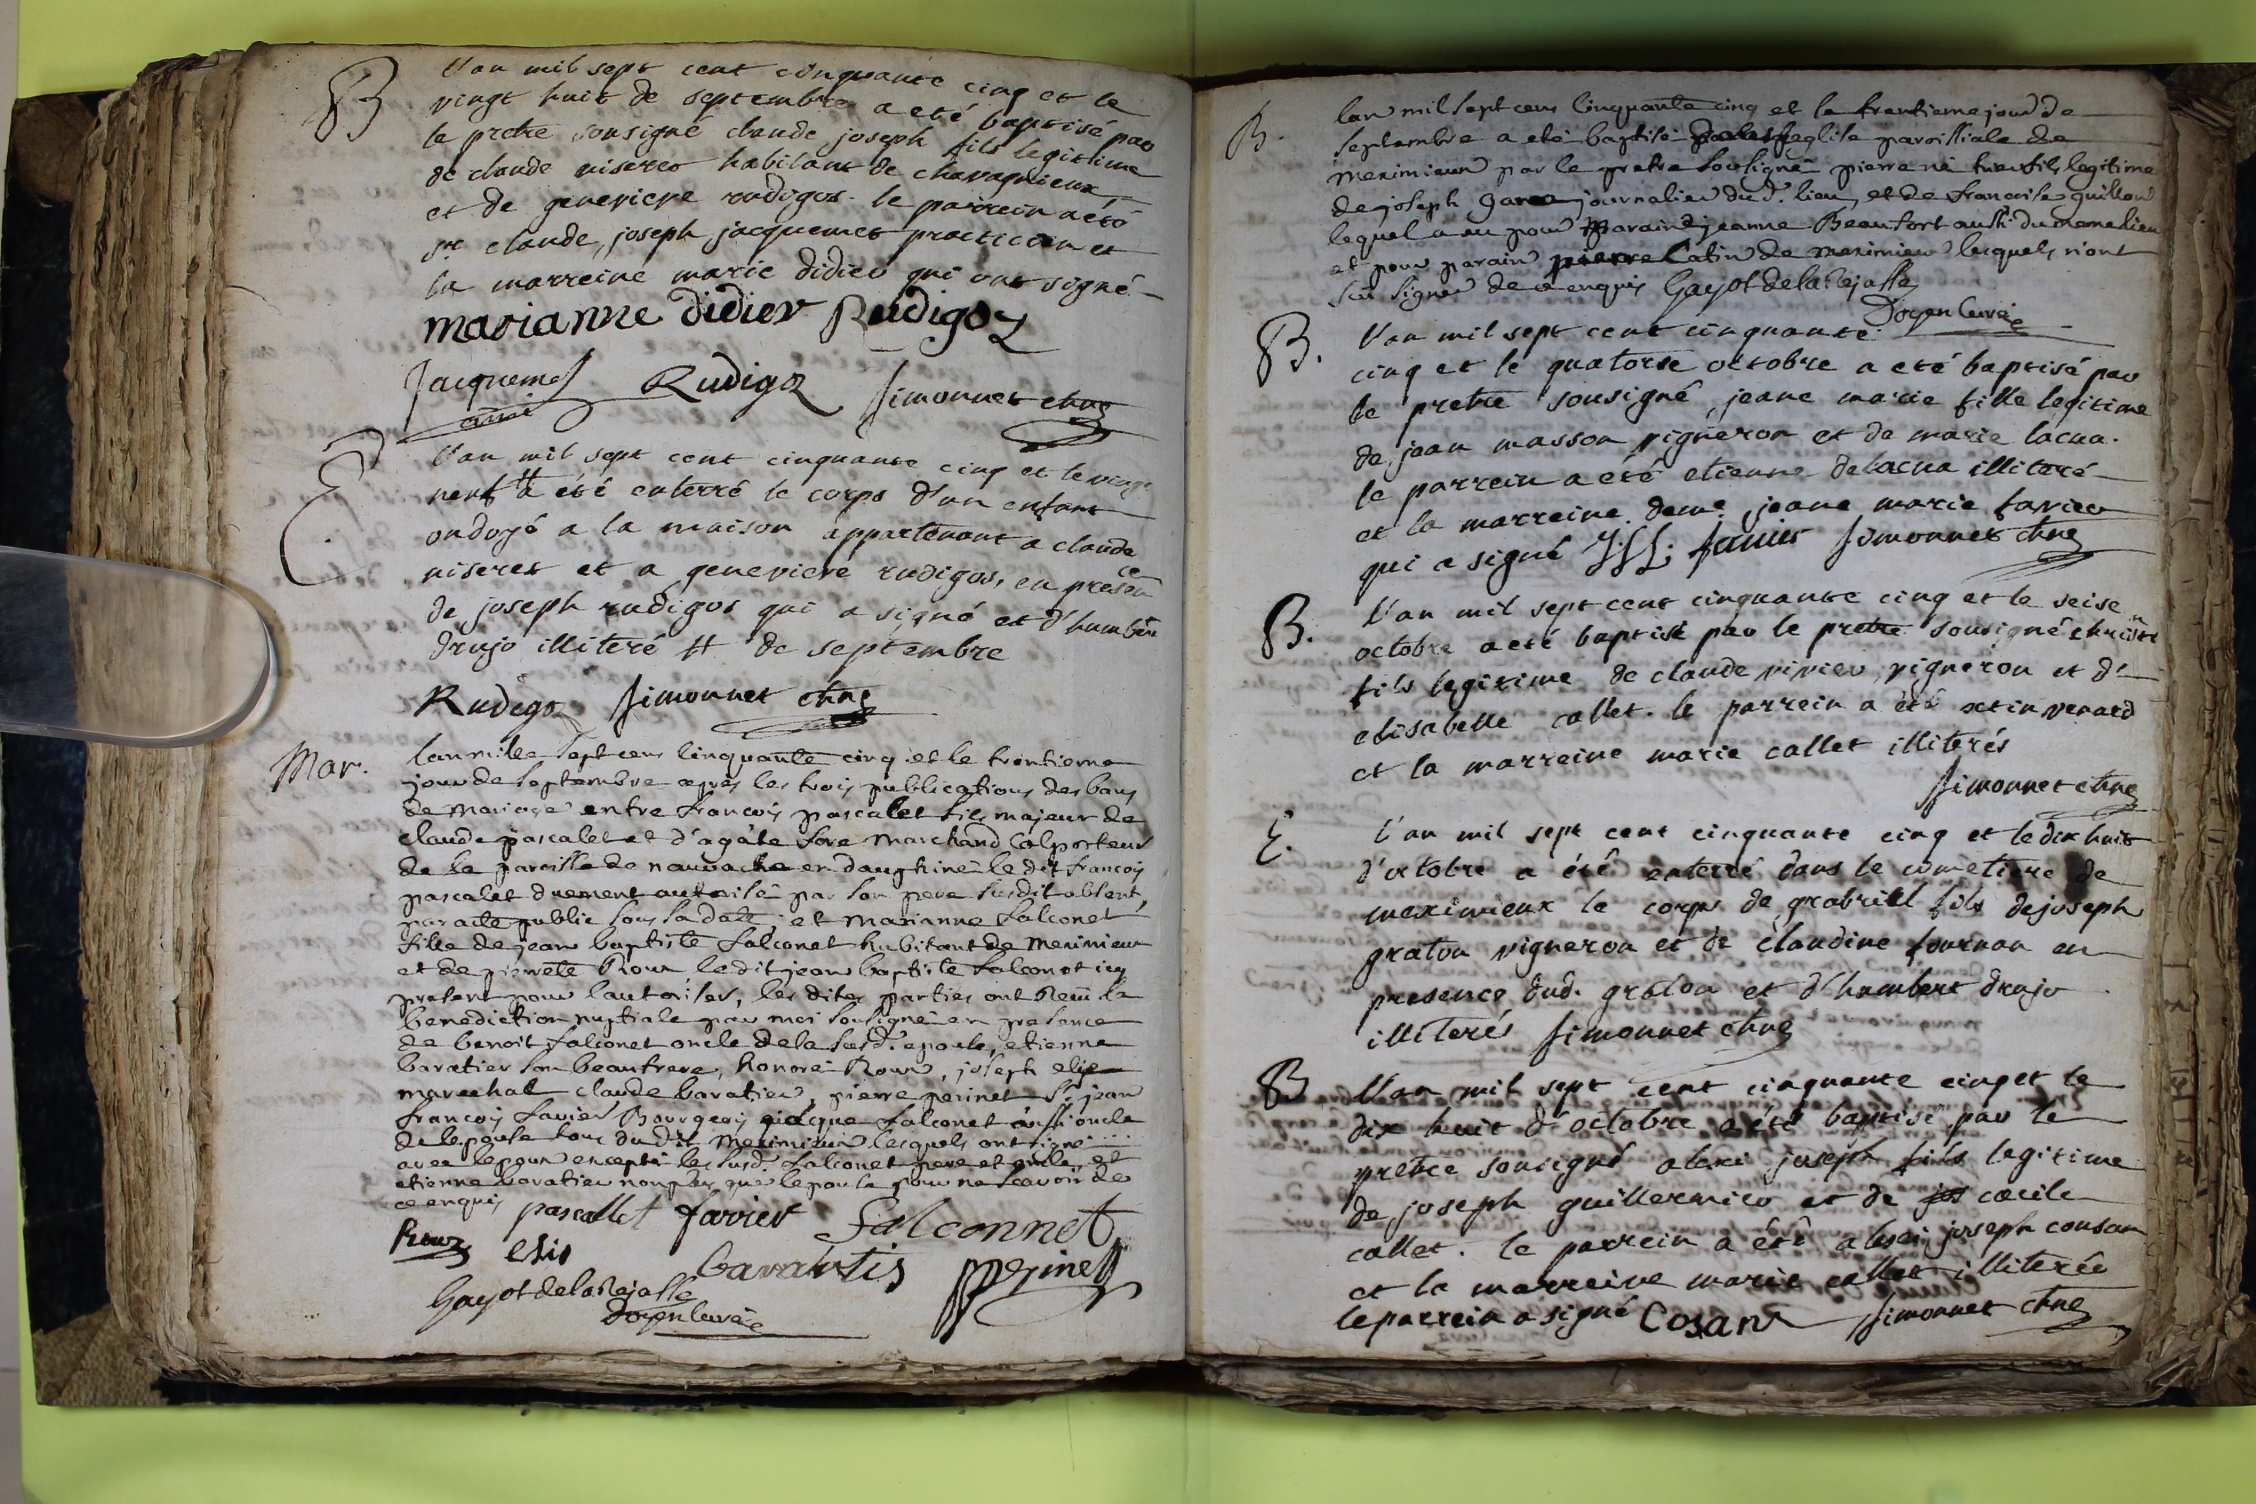 B
L'an mil sept cent cinquante cinq et le
vingt huit de septembre a eté baptisé par
le pretre sousigné claude joseph fils legitime
de claude niseret habitant de charagnieux
et de genevieve rudigos. le parrein a eté
sr. claude joseph jacquemet practicien et
la marreine marie didier qui ont signé
marianne didier Rudigoz
Jacquemet Rudigoz Simonnet chne
E
L'an mil sept cent cinquante cinq et le vingt
neuf # a été enterré le corps d'un enfant
ondoyé a la maison appartenant a claude
niseret et a genevieve rudigos, en presence
de joseph rudigos qui a signé et d'humbert
drujo illiteré # de septembre
Rudigoz Simonnet chne
Mar.
lan mille sept cens cinquante cinq et le trentieme
jour de septembre après les trois publications des bans
de mariage entre françois pascalet fils majeur de
claude pascalet et d'agate fore marchand colporteur
de la paroisse de en dauphiné le dit françois
pascalet duement autorisé par son pere susdit absent,
par acte public sous sa date, et marianne falconet
fille de jean baptiste falconet habitant de meximieux
et de pierrette Roux le dit jean baptiste falconet icy
present pour l'autoriser, les dites parties ont Reçu la
benediction nuptiale par moi soussigné en presence
de benoit falconet oncle de la susd. epouse, etienne
baratier son beaufrere, honoré Roux, joseph elie
marechal claude baratier, pierre perinet Sr. jean
françois favier Bourgeois jacque falconet aussi oncle
de l'epouse tous du dit meximieux lesquels ont signé
avec lepoux excepté les susd. falconet pere et oncle, et
etienne baratier non plus que lepouse pour ne sçavoir de
ce enquis pascallet favier falconnet
Roux elie baratier pperinet
Gayot de la Rejasse
Doyen Curé
B.
lan mil sept cens cinquante cinq et le trentieme jour de
septembre a eté baptisé eglise paroissiale de
meximieux par le pretre soussigné pierre né fils legitime
de joseph journalier du d. lieu, et de françoise guillon
lequel a eu pour maraine jeanne Beaufort aussi du meme lieu
et pour parain pierre Catin de meximieux lesquels n'ont
sçu signer de ce enquis Gayot de la Rejasse
Doyen Curé
B.
L'an mil sept cent cinquante
cinq et le quatorse octobre a eté baptisé par
le pretre sousigné, jeane marie fille legitime
de jean masson vigneron et de marie lacua.
le parrein a eté etienne delacua illiteré
et la marreine deme. jeane marie favier
qui a signé favier Simonnet chne
B.
L'an mil sept cent cinquante cinq et le seise
octobre a eté baptisé par le pretre sousigné
fils legitime de claude rivier vigneron et d'
elisabelle callet. le parrein a été venard
et la marreine marie callet illiterés
Simonnet chne
E.
L'an mil sept cent cinquante cinq et le dix huit
d'octobre a été enterré dans le cimetiere de
meximieux le corps de grabriel fils de joseph
graton vigneron et de claudine fournon en
presence dud. graton et d'humbert drujo
illiterés Simonnet chne
B
L'an mil sept cent cinquante cinq et le
dix huit d'octobre a été baptisé par le
pretre sousigné alexi joseph fils legitime
de joseph guillermier et de jos cœcile
callet. le parrein a été alexi joseph consan
et la marreine marie callet illiterée
le parrein a signé Cosan Simonnet chne